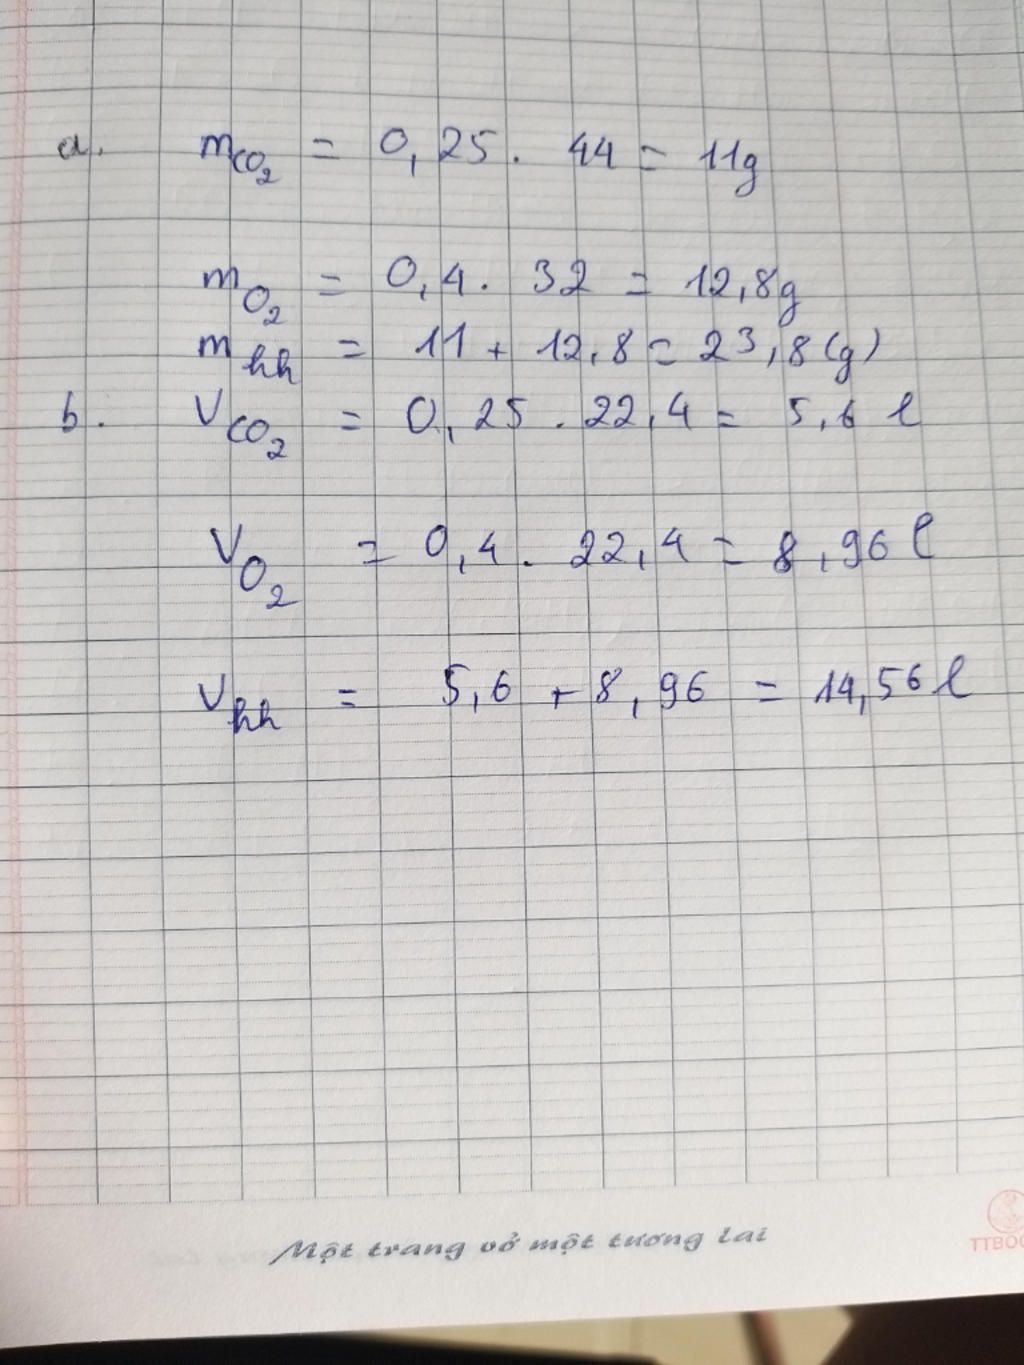 a. mCO₂ = 0,25 . 44 = 11g
mO₂ = 0,4 . 32 = 12,8g
mhh = 11 + 12,8 = 23,8 (g)
b. VCO₂ = 0,25 . 22,4 = 5,6 l
VO₂ = 0,4 . 22,4 = 8,96 l
Vhh = 5,6 + 8,96 = 14,56 l
Một trang vở một tương lai